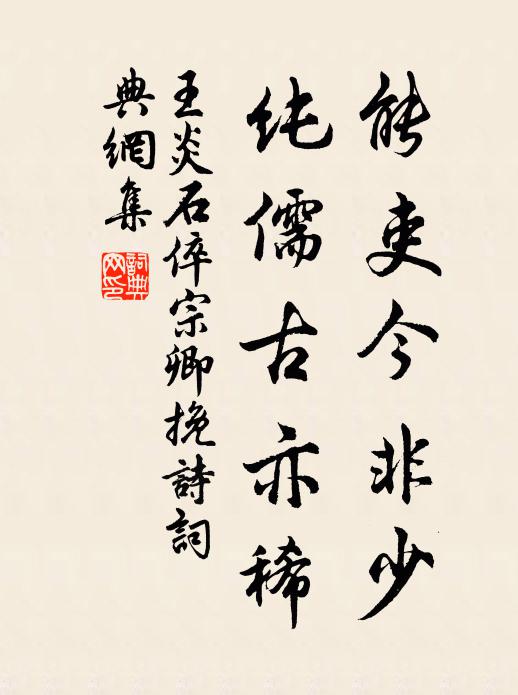 能吏今非少
纯儒古亦稀
王炎石倅宗卿挽詩詞
典網集
詞典
网印